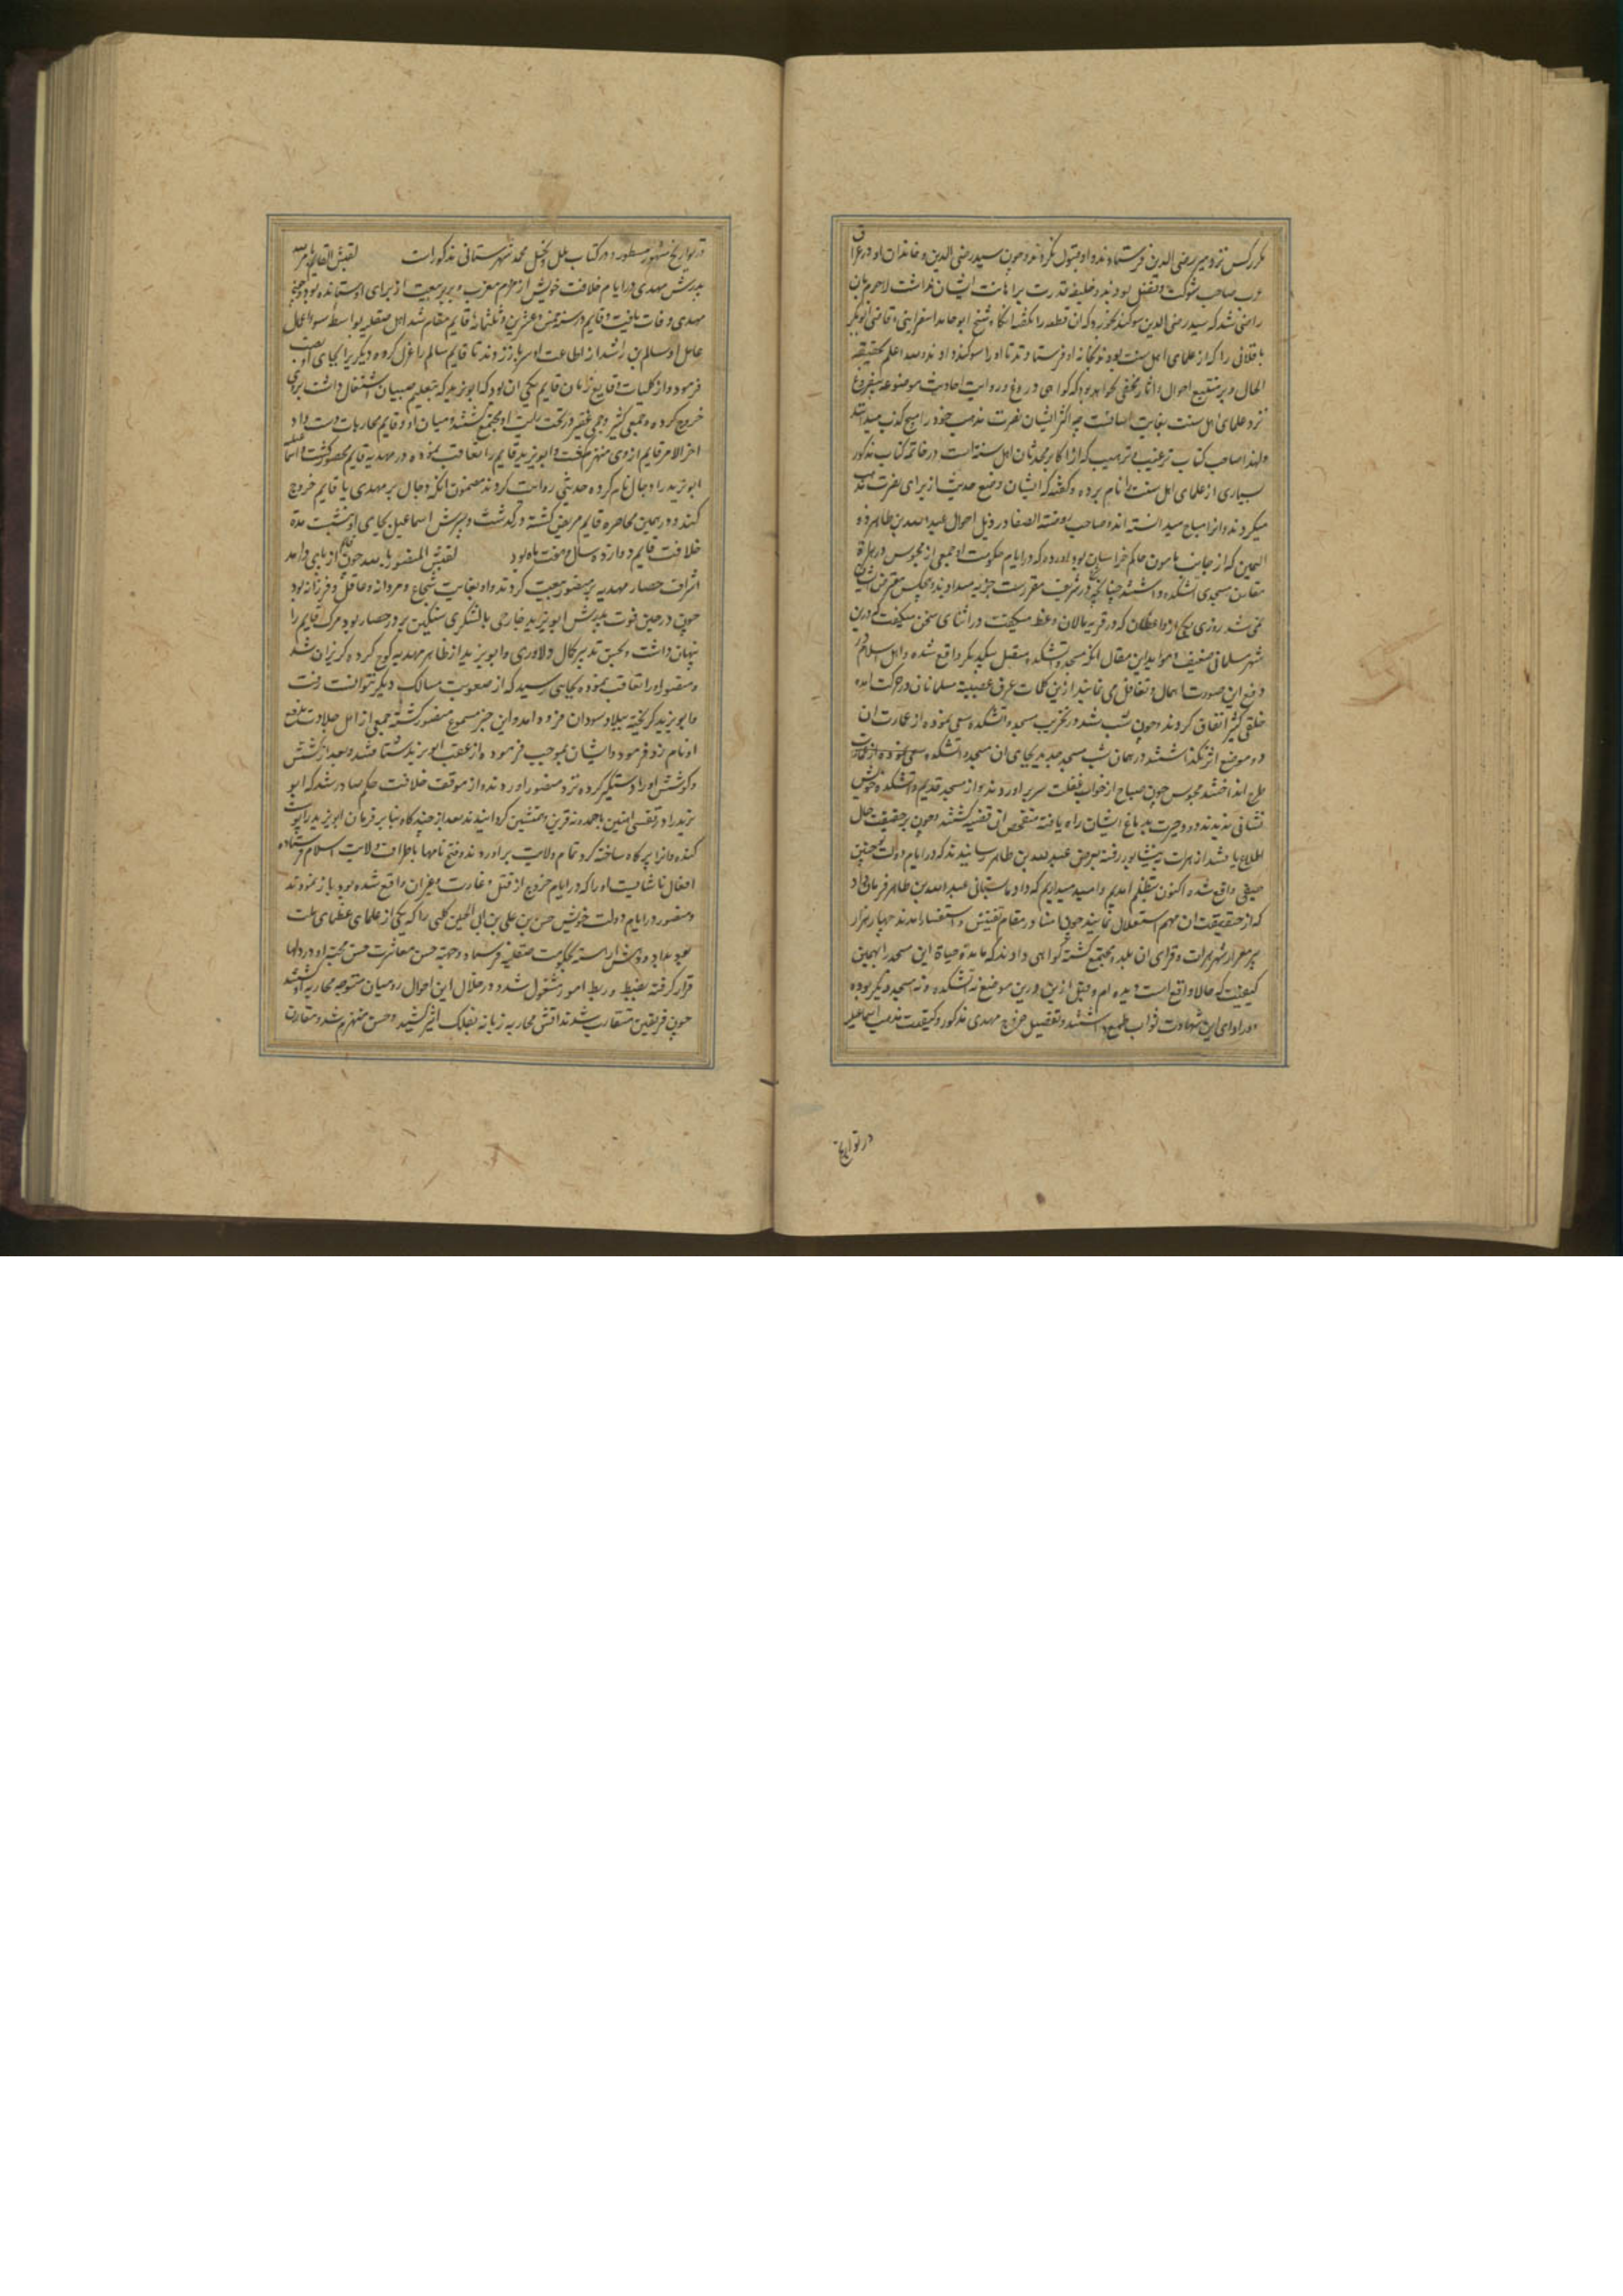 مکرر کس نزد میر رضی الدین فرستادند و او قبول نکرد و چون سید رضی الدین و خاندان او در عراق
عرب صاحب شوکت و تفضل بودند و خلیفه قدرت بر اهانت ایشان نداشت لاجرم بان
راضی شد که سید رضی الدین سوکند بخورد که ان قطعه را نکفته انکاه شیخ ابو حامد اسفراینی و قاضی ابو بکر
باقلانی را که از علمای اهل سنت بودند بخانه او فرستادند تا او را سوکند دادند و الله اعلم بحقیقة
الحال و بر متتبع احوال و اثار مخفی نخواهد بود که کواهی دروغ و روایت احادیث موضوعه
نزد علمای اهل سنت بغایت اسانست چه اکثر ایشان نصرت مذهب خود را
و لهذا صاحب کتاب ترغیب و ترهیب که از اکابر محدثان اهل سنة است در خاتمه کتاب مذکور
بسیاری از علمای اهل سنت را نام برده و کفته که ایشان وضع حدیث از برای نصرت مذهب
میکردند و انرا مباح میدانسته اند و صاحب روضة الصفا در ذیل احوال عبد الله بن طاهر ذو
الیمین که از جانب مامون حاکم خراسان بود اورده که در ایام حکومت او جمعی از مجوس در هراة
مقارن مسجدی اتشکده داشتند چنانچه در شریعت مقررست جزیه میدادند و هیچکس متعرض ایشان
نمی شد روزی یکی از واعظان که در قریه مالان وعظ میکفت در اثنای سخن میکفت که درین
شهر مسلمانی ضعیف است و موید این مقال انکه مسجد و اتشکده متصل بیکدیکر واقع شده و اهل اسلام در
دفع این صورت اهمال و تغافل می نمایند ازین کلمات عرق عصبیة مسلمانان در حرکت امده
خلقی کثیر اتفاق کردند و چون شب شد در تخریب مسجد و اتشکده سعی نموده از عمارت ان
دو موضع اثر نکذاشتند و در همان شب مسجد جدید بجای ان مسجد و اتشکده
طرح انداختند مجوس چون صباح از خواب غفلت سر براوردند و از مسجد قدیم و اتشکده خویش
نشانی ندیدند و حیرت بدماغ ایشان راه یافته متفحص ان قضیه کشتند و چون بر حقیقت حال
اطلاع یافتند از هرات به نیشابور رفته بعرض عبد الله بن طاهر رسانیدند که در ایام دولت تو چنین
حیفی واقع شده اکنون بتظلم امدیم و امید میداریم که داد ما بستانی عبد الله بن طاهر فرمان داد
که از حقیقت ان مهم استعلام نمایند چون در مقام تفتیش و استفسار امدند چهار هزار
پیر معمر از شهر هرات و قرای ان بلده مجتمع کشته کواهی دادند که ما در مدة حیاة این مسجد را بهمین
کیفیت که حالا واقع است دیده ایم و قبل ازین درین موضع نه اتشکده و نه مسجد دیکر بوده
و در ادای این شهادت ثواب طمع داشتند و تفصیل خروج مهدی مذکور و کیفیت مذهب اسماعیلیه
در تواریخ
در تواریخ مشهور مسطور و در کتاب ملل و نحل محمد شهرستانی مذکورات لقبش القایم بامر الله
پدرش مهدی در ایام خلافت خویش از مردم مغرب و بربر بیعت از برای او ستانده بود و چون
مهدی وفات یافت و قایم در سنة خمس و عشرین و ثلثمائة قایم مقام شد اهل صقلیه بواسطه سوء اعمال
عامل او سالم بن راشد از اطاعت او سر باز زدند تا قایم سالم را عزل کرده دیکریرا بجای او نصب
فرمود و از کلیات وقایع زمان قایم یکی ان بود که ابو یزید که بتعلیم صبیان اشتغال داشت بر وی
خروج کرده و جمعی کثیر و جمی غفیر در تحت رایت او مجتمع کشتند و میان او و قایم محاربات دست داد
اخر الامر قایم از وی منهزم کشت و ابو یزید قایم را تعاقب نموده در مهدیه قایم محصور کشت و اسماعیلیه
ابو یزید را دجال نام کرده حدیثی روایت کردند مضمون انکه دجال بر مهدی یا قایم خروج
کند و در همین محاصره قایم مریض کشته در کذشت و پسرش اسماعیل بجای او نشست مدة
خلافت قایم دوازده سال و هفت ماه بود لقبش المنصور بالله چون قایم از پای درامد
اشراف حصار مهدیه بر منصور بیعت کردند و او بغایت شجاع و مردانه و عاقل و فرزانه بود
چون در حین فوت پدرش ابو یزید خارجی با لشکری سنکین بر در حصار بود مرک قایم را
پنهان داشت و بحسن تدبیر و کمال دلاوری و ابو یزید از ظاهر مهدیه کوچ کرده کریزان شد
و منصور او را تعاقب نموده بجایی رسید که از صعوبت مسالک دیکر نتوانست رفت
و ابو یزید کریخته ببلاد سودان در امد و این خبر مسموع منصور کشته جمعی از اهل جلادت
او نامزد فرمود و ایشان بموجب فرموده از عقب ابو یزید شتافتند و بعد از کشش
و کوشش او را دستکیر کرده نزد منصور اوردند و از موقف خلافت حکم صادر شد که ابو
یزید را در قفسی اهنین با حمدونه قرین و همنشین کردانیدند بعد از چند کاه بنا بر فرمان ابو یزید را پوست
کنده و انرا پر کاه ساخته کرد تمام ولایت براوردند و فتح نامها باطراف ولایت اسلام فرستاده
افعال ناشایست او را که در ایام خروج از قتل و غارت و غیر ان واقع شده بود باز نمودند
و منصور در ایام دولت خویش حسن بن علی بن ابی الحسین کلبی را که یکی از علمای عظمای ملت
بود بداد و دهش اراسته بحکومت صقلیه فرستاد و جهة حسن معاشرت حسن محبت او در دلها
قرار کرفته بضبط و ربط امور مشغول شد و در خلال این احوال رومیان متوجه محاربه او کشتند
چون فریقین متقارب شدند اتش محاربه زبانه بفلک اثیر کشید و حسن منهزم شد و مقارن